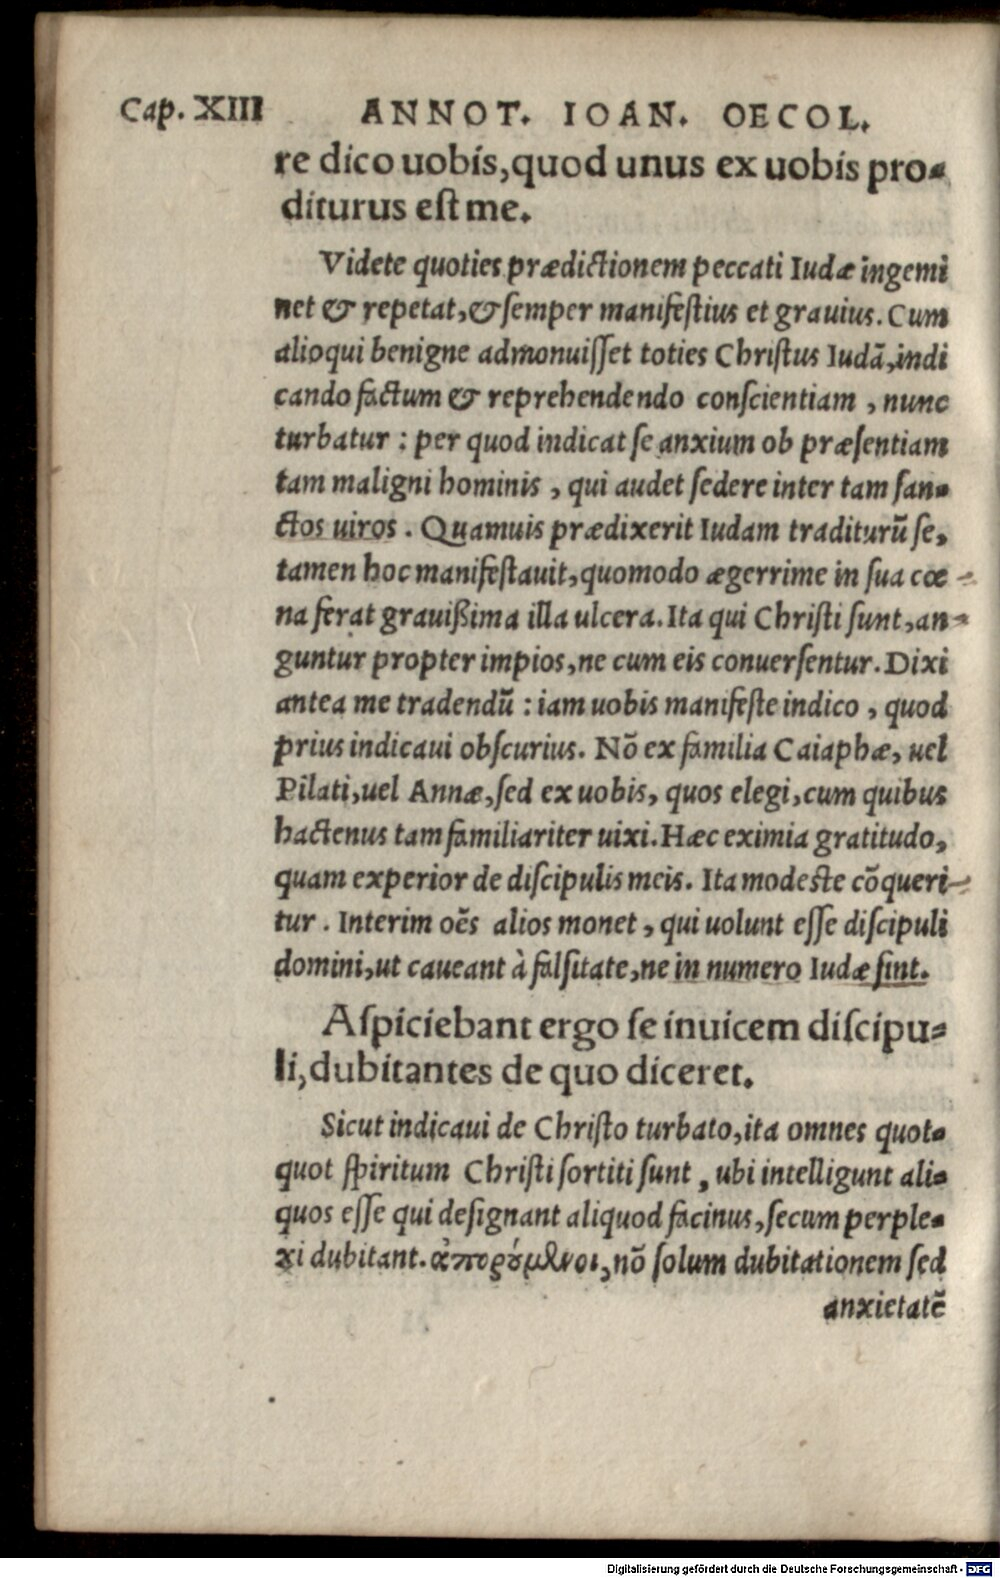 Cap. XIII ANNOT. IOAN. OECOL.
re dico uobis, quod unus ex uobis pro-
diturus est me.
Videte quoties prædictionem peccati Iudæ ingemi
net & repetat, & semper manifestius et grauius. Cum
alioqui benigne admonuisset toties Christus Iudã, indi
cando factum & reprehendendo conscientiam, nunc
turbatur: per quod indicat se anxium ob præsentiam
tam maligni hominis, qui audet sedere inter tam san-
ctos uiros. Quamuis prædixerit Iudam traditurũ se,
tamen hoc manifestauit, quomodo ægerrime in sua cœ-
na ferat grauißima illa ulcera. Ita qui Christi sunt, an-
guntur propter impios, ne cum eis conuersentur. Dixi
antea me tradendũ: iam uobis manifeste indico, quod
prius indicaui obscurius. Nõ ex familia Caiaphæ, uel
Pilati, uel Annæ, sed ex uobis, quos elegi, cum quibus
hactenus tam familiariter uixi. Hæc eximia gratitudo,
quam experior de discipulis meis. Ita modeste cõqueri-
tur. Interim oẽs alios monet, qui uolunt esse discipuli
domini, ut caueant à falsitate, ne in numero Iudæ sint.
Aspiciebant ergo se inuicem discipu-
li, dubitantes de quo diceret.
Sicut indicaui de Christo turbato, ita omnes quot-
quot spiritum Christi sortiti sunt, ubi intelligunt ali-
quos esse qui designant aliquod facinus, secum perple-
xi dubitant. ἀπορούμενοι, nõ solum dubitationem sed
anxietatẽ
Digitalisierung gefördert durch die Deutsche Forschungsgemeinschaft - DFG